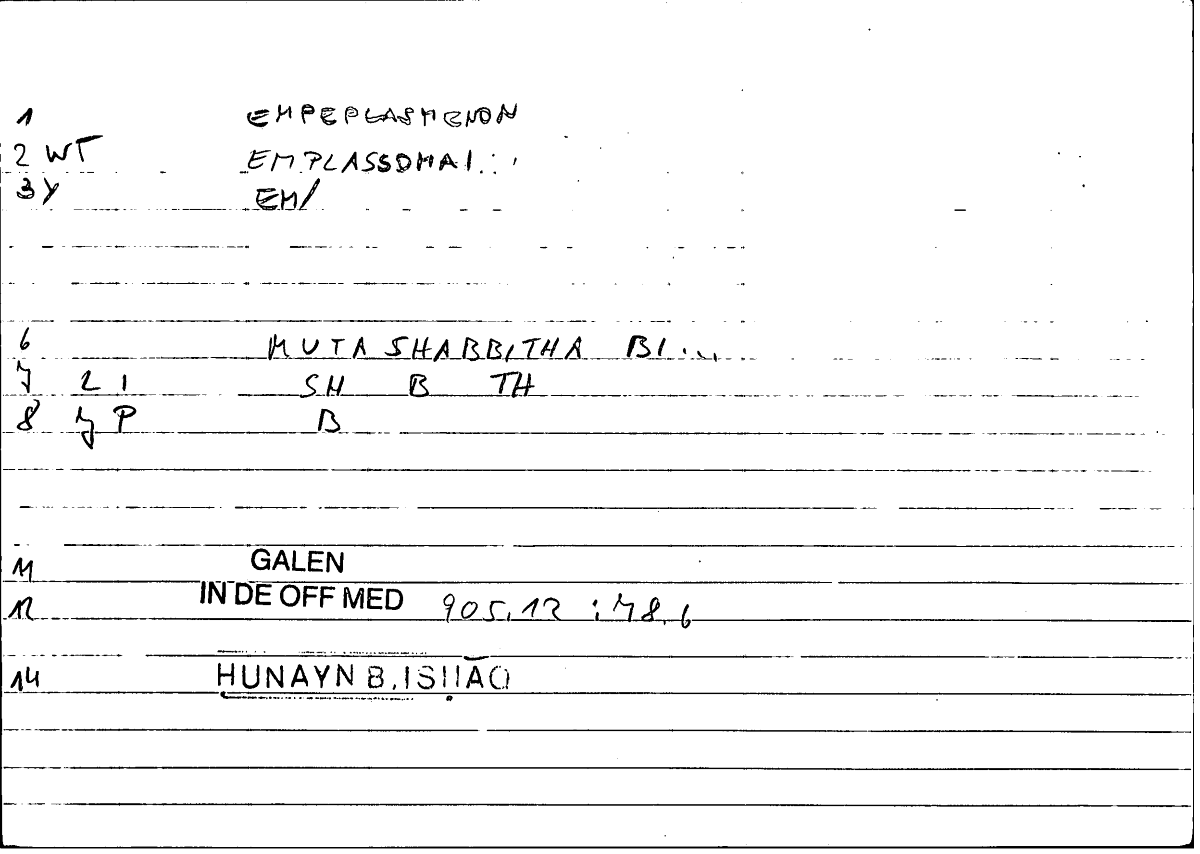 1 EMPEPLASMENON
2 WT EMPLASSOMAI...
3 Y EM/
6 MUTASHABBITHA BI...
7 2 1 SH B TH
8 7 P B
11 GALEN
12 IN DE OFF MED 905.12 : 78.6
14 HUNAYN B. ISḤĀQ